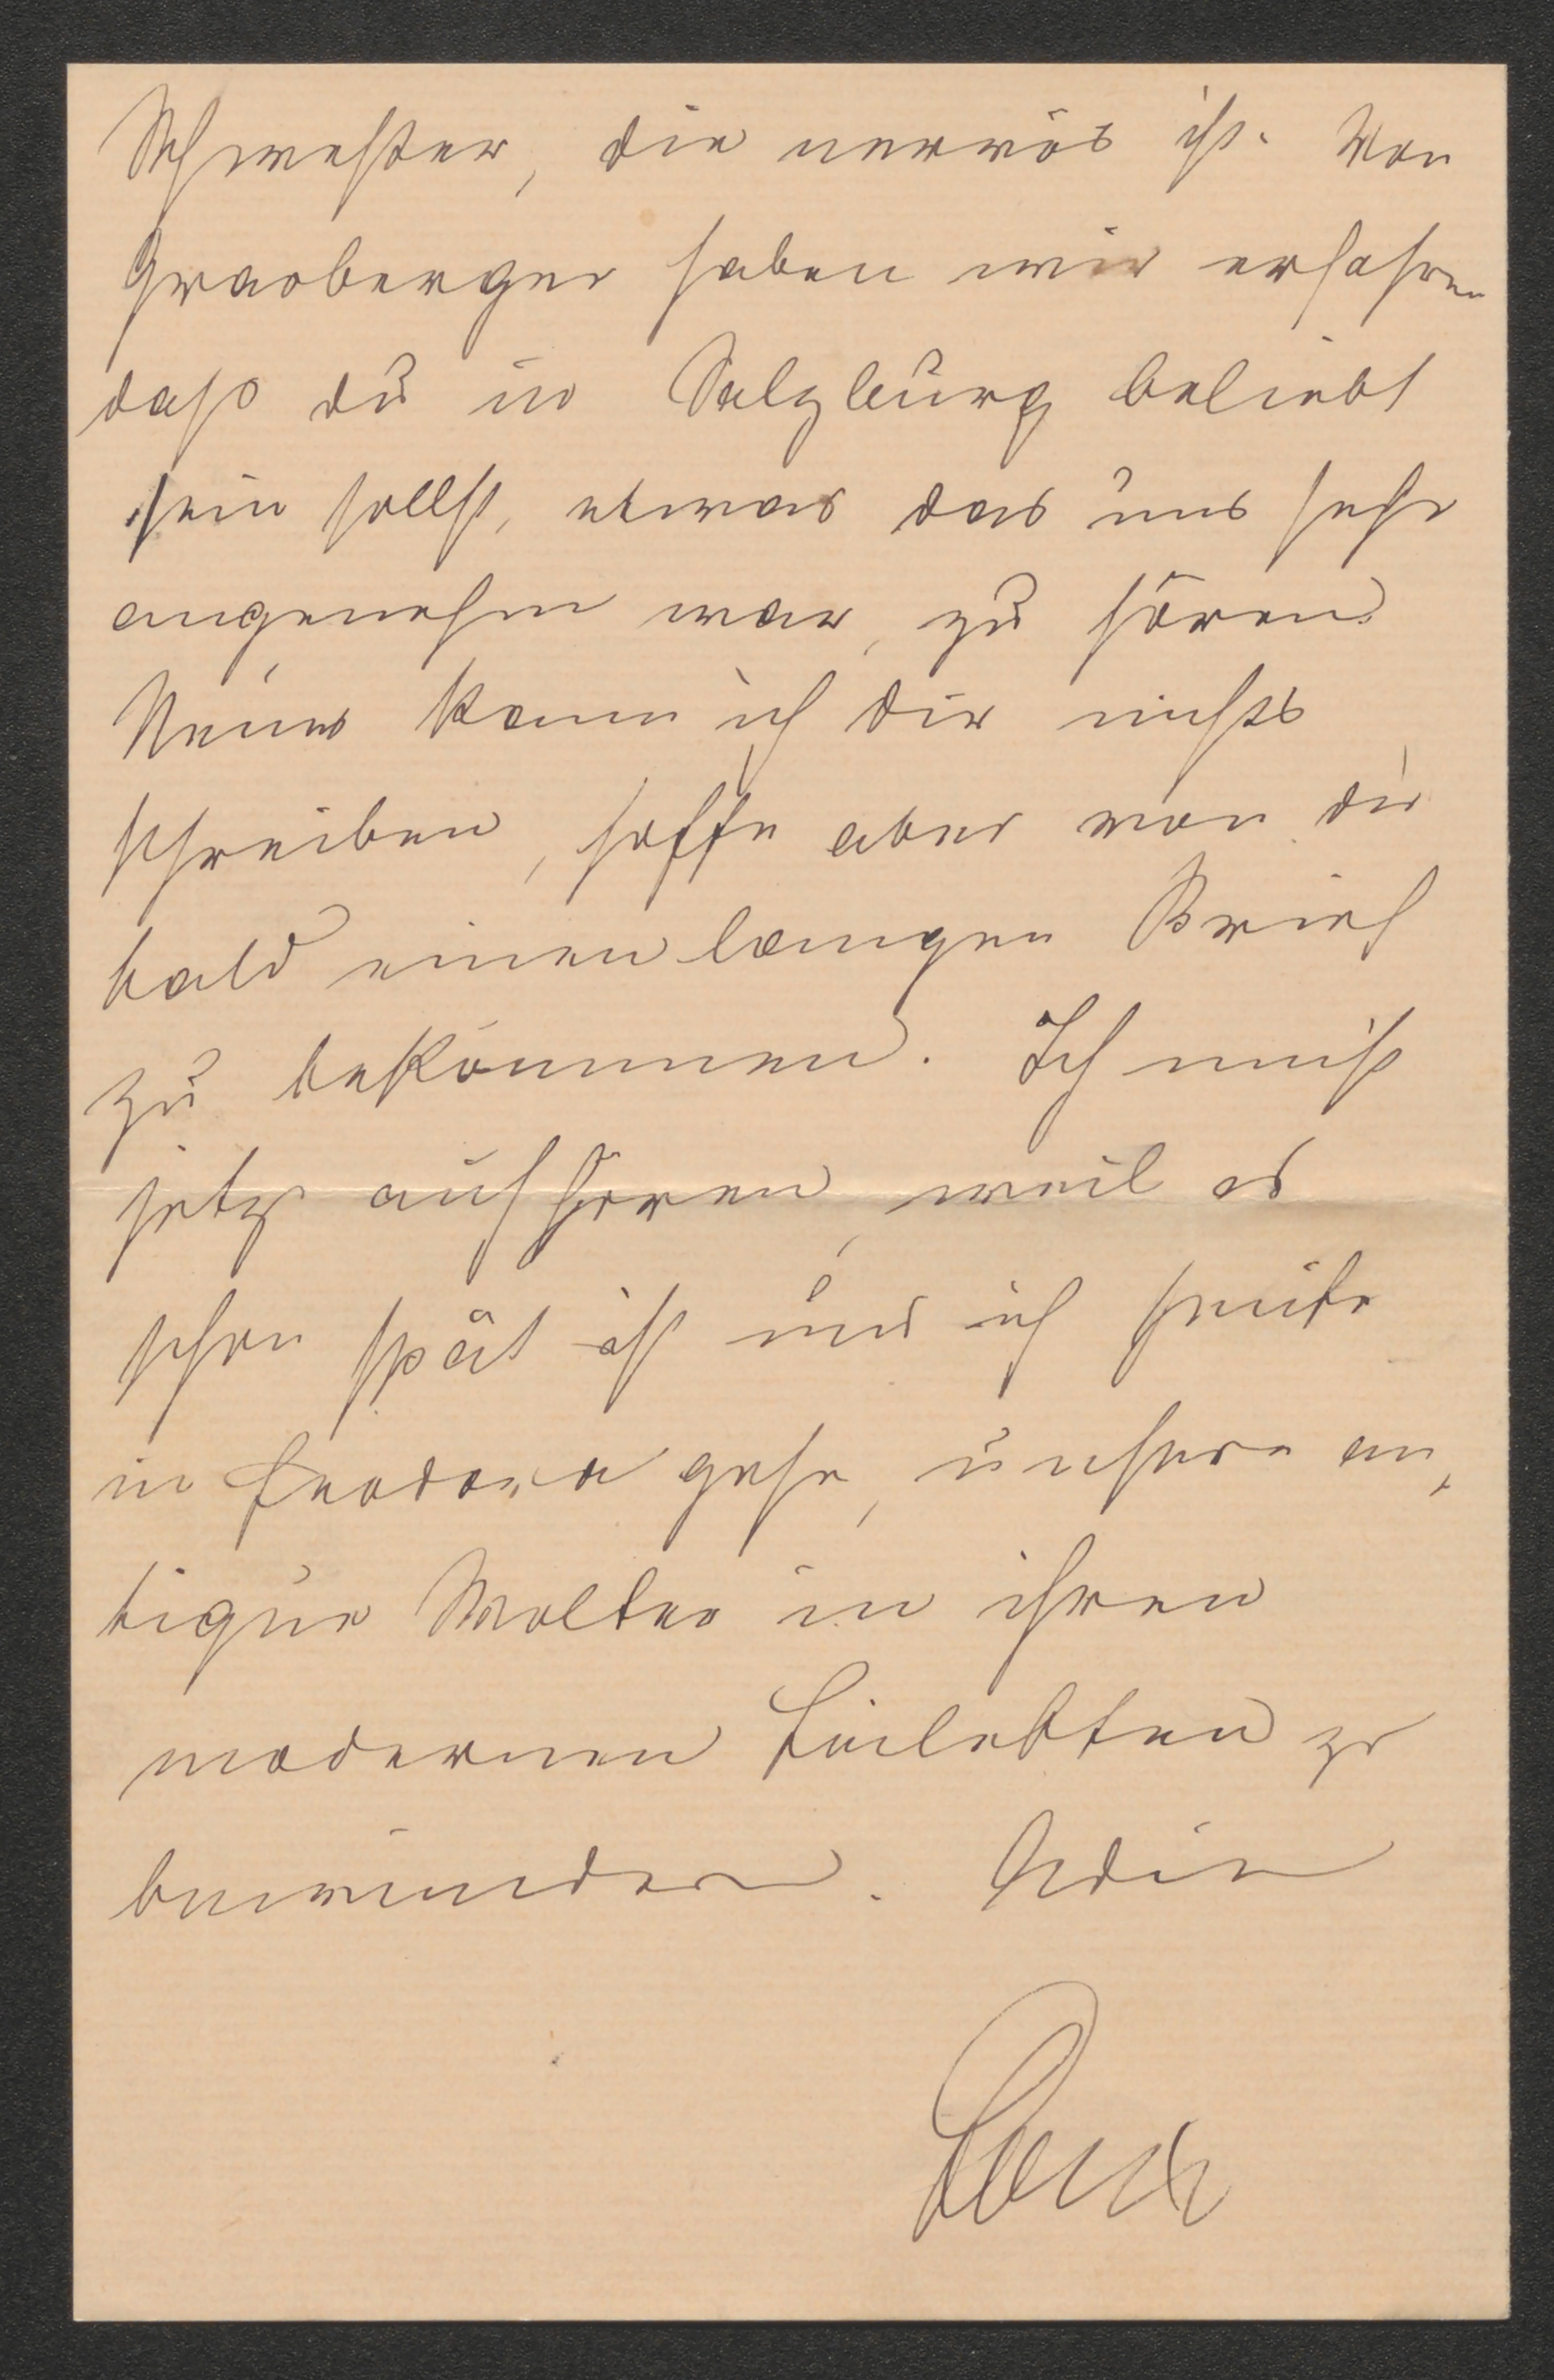 Schwester, die nervös ist. Von
Grasberger haben wir erfahren
daß du in Salzburg beliebt
sein sollst, etwas das uns sehr
angenehm war, zu hören.
Neues kann ich dir nichts
schreiben, hoffe aber von dir
bald einen langen Brief
zu bekommen. Ich muß
jetzt aufhören, weil es
schon spät ist und ich heute
in Feodora gehe, unsere an-
tique Wolter in ihren
modernen Toiletten zu
bewundern. Adieu